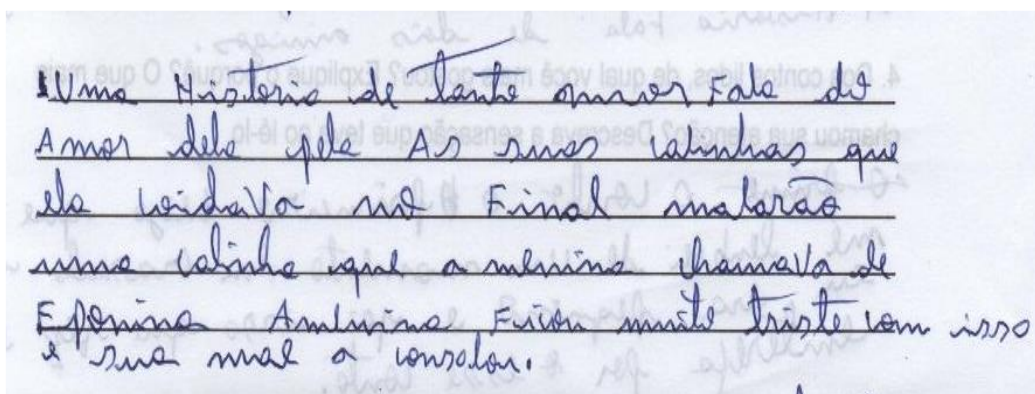 Uma Historia de tanto amor Fala do
Amor dela pela As suas Galinhas que
ela coidava no Final matarão
uma Galinha que a menina chamava de
Eponina Ficou muito triste com isso
e sua mãe a consolou.